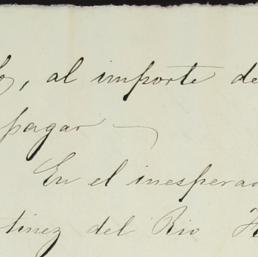 , al importe de
pagar
En el inespera
tinez del Rio H